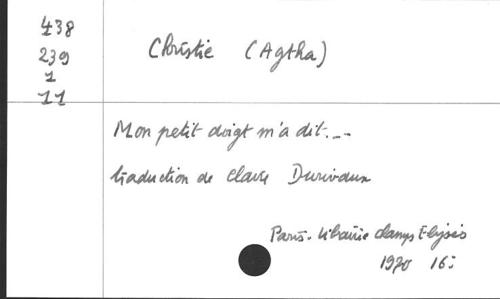 438
239
1
11
Christie (Agtha)
Mon petit doigt m'a dit...
traduction de Claire Durivaux
Paris. Librairie Champs Elysées
1970 16: